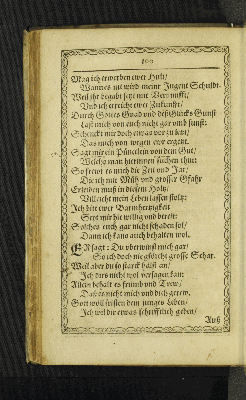 Mag ich erwerben ewr Huld/
Wann es mit wird meine Jugent Schuldt.
Weil ihr begabt seyt mit
Vnd ich erreicht ewr Zukunfft/
Durch Gottes Gnad vnd deß Glücks Gunst
Last mich von euch nicht gar vmb sunst:
Schenckt mir doch etwas
Das mich von wegen ewr ergetz.
Sagt mir ein Pünctlein von dem Gut/
Welchs man hierinnen suchen thut:
So frewt es mich die Zeit vnd Jar/
Die ich mit Müh vnd grosser Gfahr
Erleiden muß in diesem Holtz/
Villeicht mein Leben lassen soltz:
Ich bitt ewr Barmhertzigkeit
Seyt mir hie willig vnd bereit:
Solches euch gar nicht schaden sol/
Dann ich kans auch behalten wol.
ER sagt: Du vberwinst mich gar/
So ich doch nie gförcht grosse Schar.
Weil aber du so starck hälst an/
Ich dirs nicht wol versagen kan:
Allein behalt es frumb vnd Trew/
Daß es nicht mich vnd dich gerew.
Gott wöll fristen dein junges Leben/
Ich wil dir etwas schrifftlich geben/
Auß